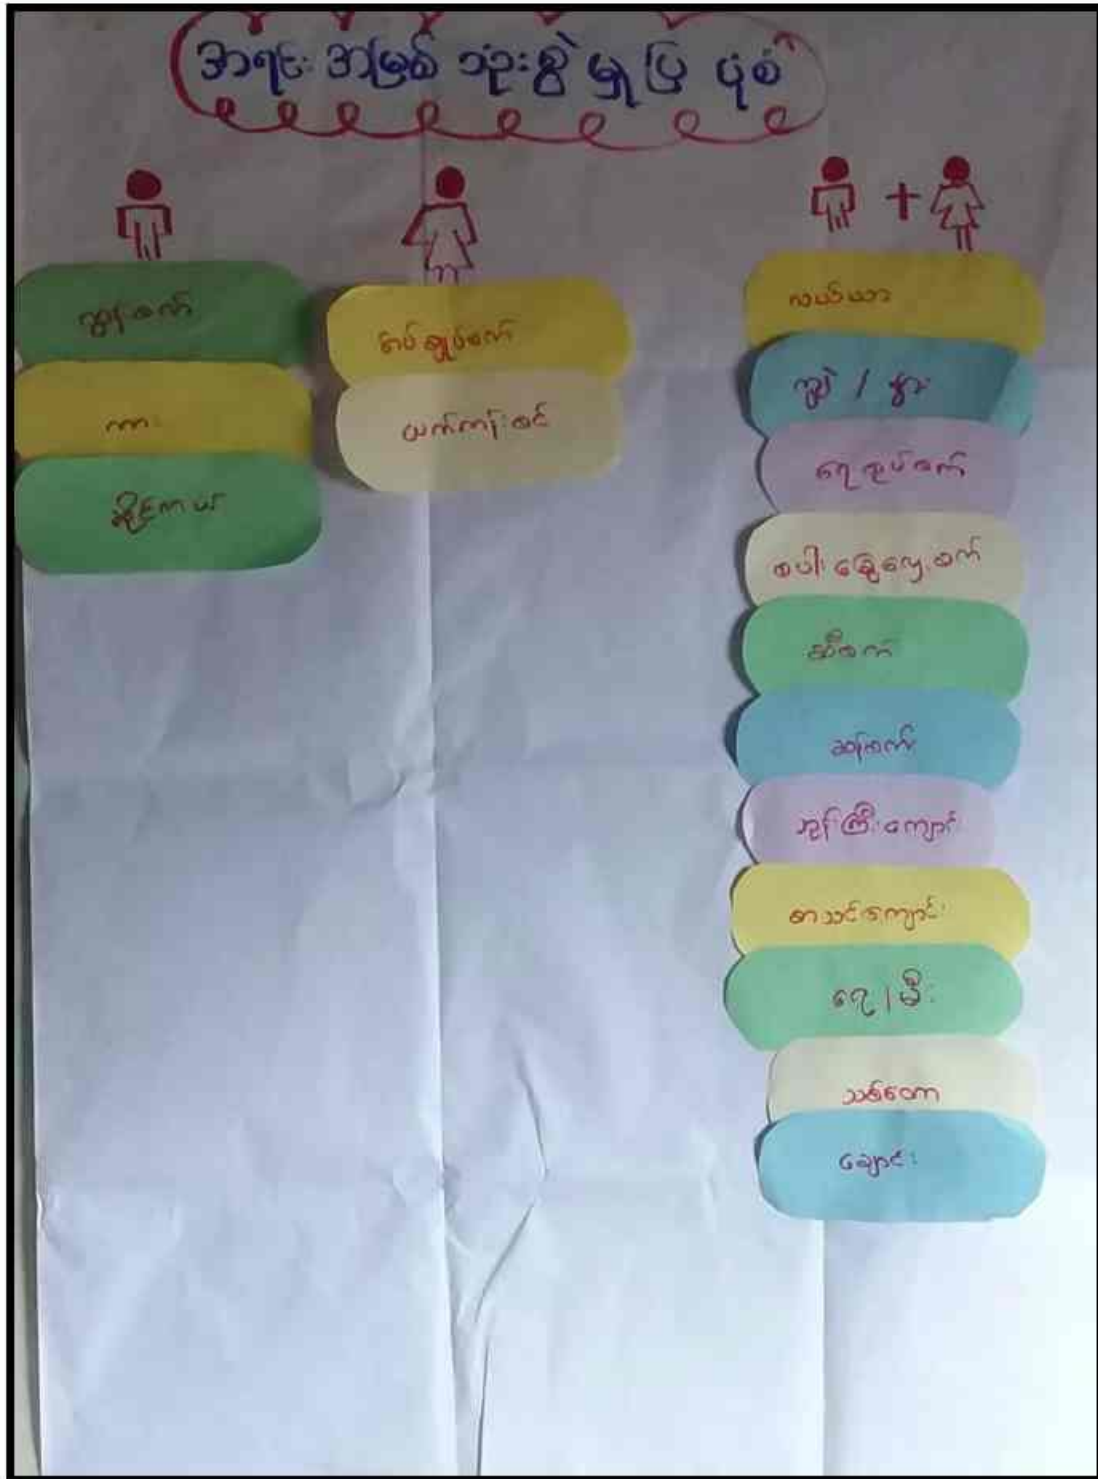 အရင်းအမြစ် သုံးစွဲမှုပြ ပုံစံ
ထွန်စက်
ကား
ဆိုင်ကယ်
စပ်ချုပ်စက်
ယက်ကန်းစင်
လယ်ယာ
ကျွဲ / နွား
ရေစုပ်စက်
စပါးခြွေလှေ့စက်
ဆီစက်
ဆန်စက်
ဘုန်းကြီးကျောင်း
စာသင်ကျောင်း
ရေ / မီး
သစ်တော
ချောင်း